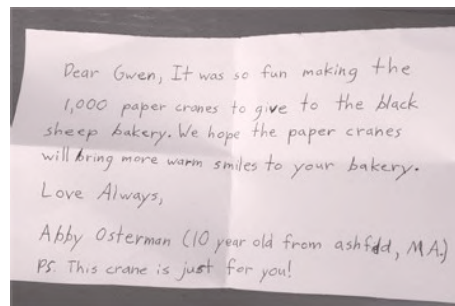 Dear Gwen, It was so fun making the
1,000 paper cranes to give to the black
sheep bakery. We hope the paper cranes
will bring more warm smiles to your bakery.
Love Always,
Abby Osterman (10 year old from ashfdd, MA.)
PS. This crane is just for you!